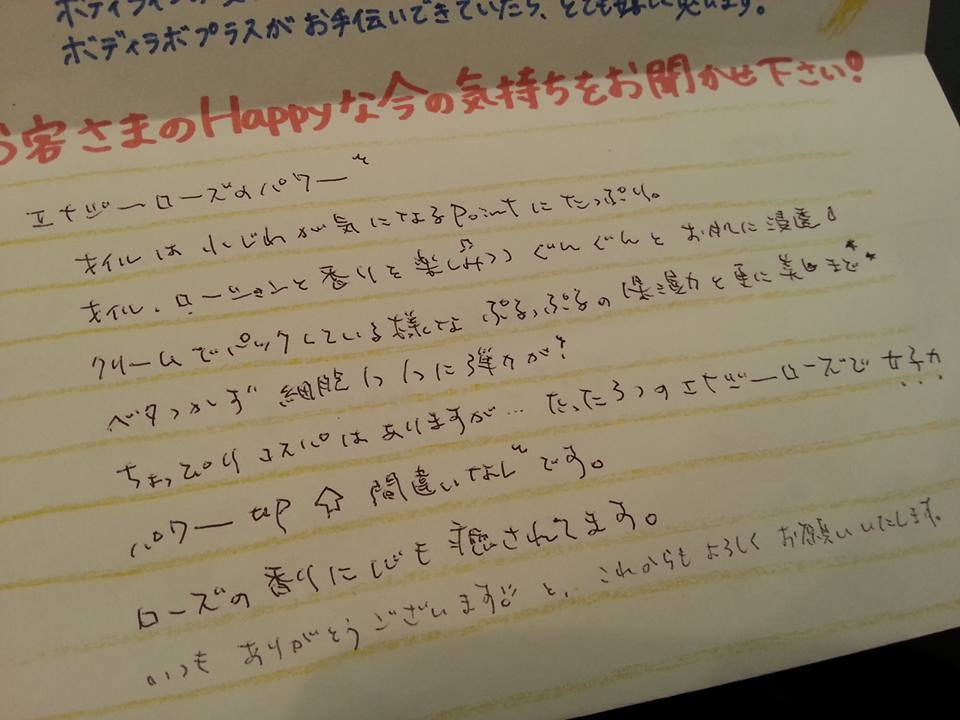 ボディラボプラスがお手伝いできていたら、とても嬉しく思います。
お客さまのHappyな今の気持ちをお聞かせ下さい!
エナジーローズのパワー〜
オイルは小じわが気になるPointにたっぷり。
オイル・ローションと香りを楽しみつつぐんぐんとお肌に浸透♪
クリームでパックしている様なぷるっぷるの保湿力と更に美白まで**
ベタつかず細胞1つ1つに弾力が?
ちょっぴりコスパはありますが… たった3つのエナジーローズで女子力
パワーup⇧間違いなし〜です。
ローズの香りに心も癒されてます。
いつもありがとうございます!! と、これからもよろしくお願いいたします。